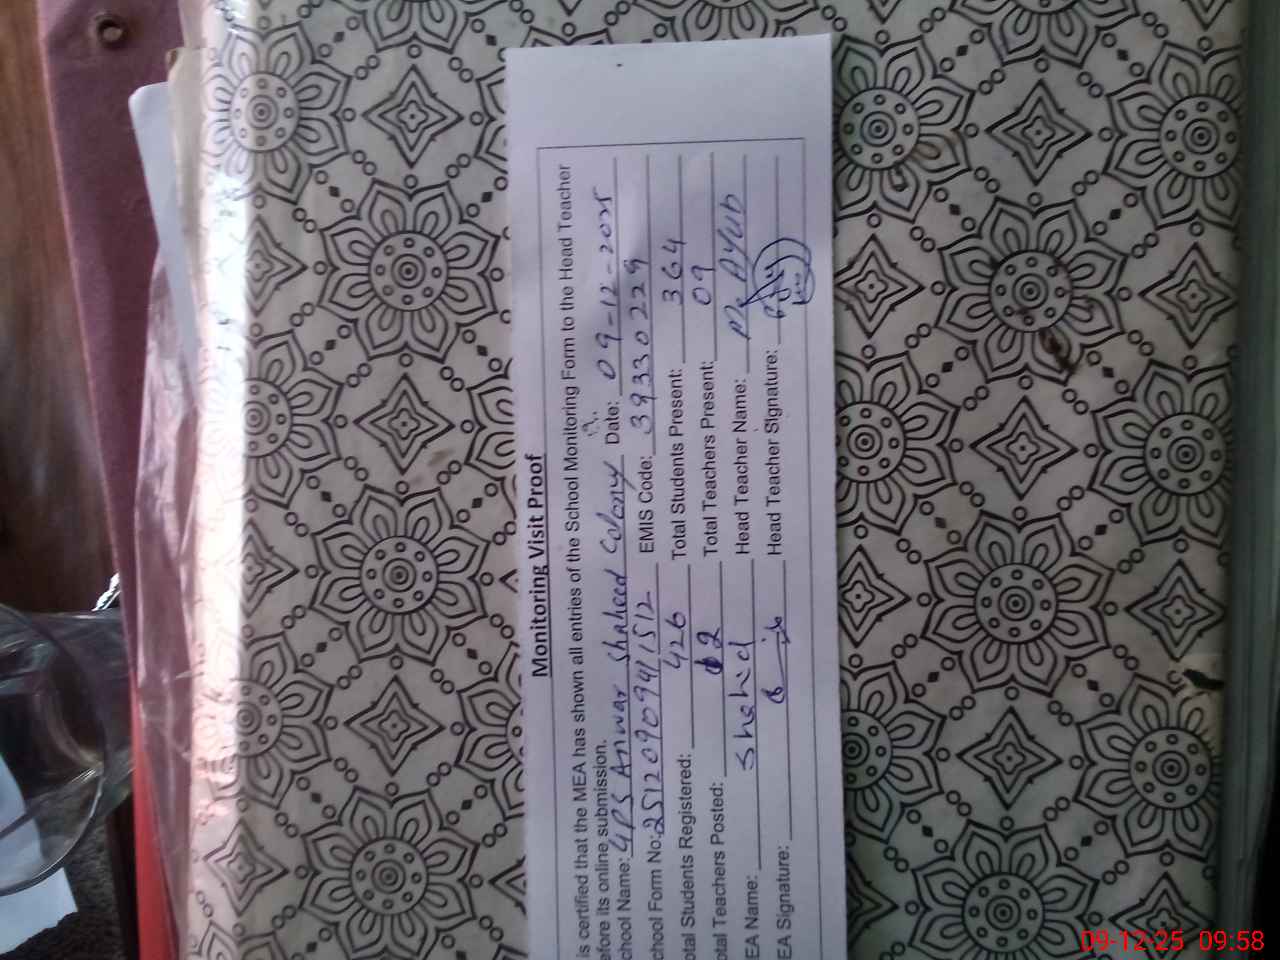 Monitoring Visit Proof
is certified that the MEA has shown all entries of the School Monitoring Form to the Head Teacher
efore its online submission.
chool Name: GPS Anwar Shaheed Colony Date: 09-12-2025
chool Form No: 2512090941512 EMIS Code: 39330229
otal Students Registered: 426 Total Students Present: 364
otal Teachers Posted: 12 Total Teachers Present: 09
EA Name: Shahid Head Teacher Name: M. Ayub
EA Signature: Head Teacher Signature:
09-12-25 09:58